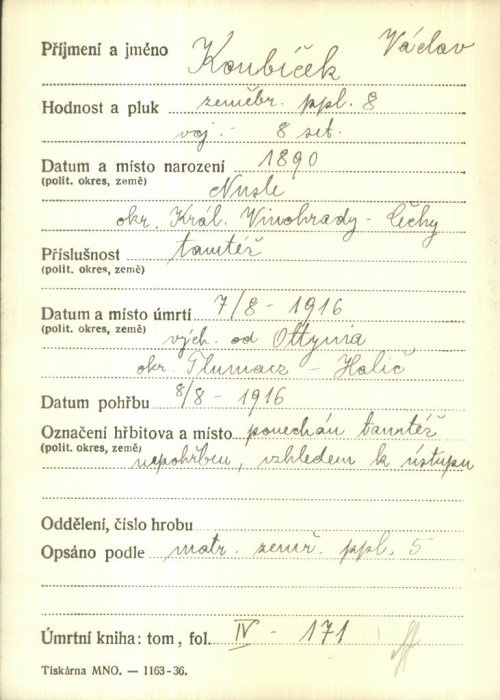 Příjmení a jméno Koubíček Václav
Hodnost a pluk zeměbr. ppl. 8
voj. - 8 set.
Datum a místo narození 1890
(polit. okres, země) Nusle
okr. Král. Vinohrady - Čechy
Příslušnost tamtéž
(polit. okres, země)
Datum a místo úmrtí 7/8 - 1916
(polit. okres, země) vých. od Ottynia
okr. Tlumacz - Halič
Datum pohřbu 8/8 - 1916
Označení hřbitova a místo ponechán tamtéž
(polit. okres, země) nepohřben, vzhledem k ústupu
Oddělení, číslo hrobu
Opsáno podle matr. zemř. ppl. 5
Úmrtní kniha: tom, fol. IV - 171
Tiskárna MNO. — 1163-36.